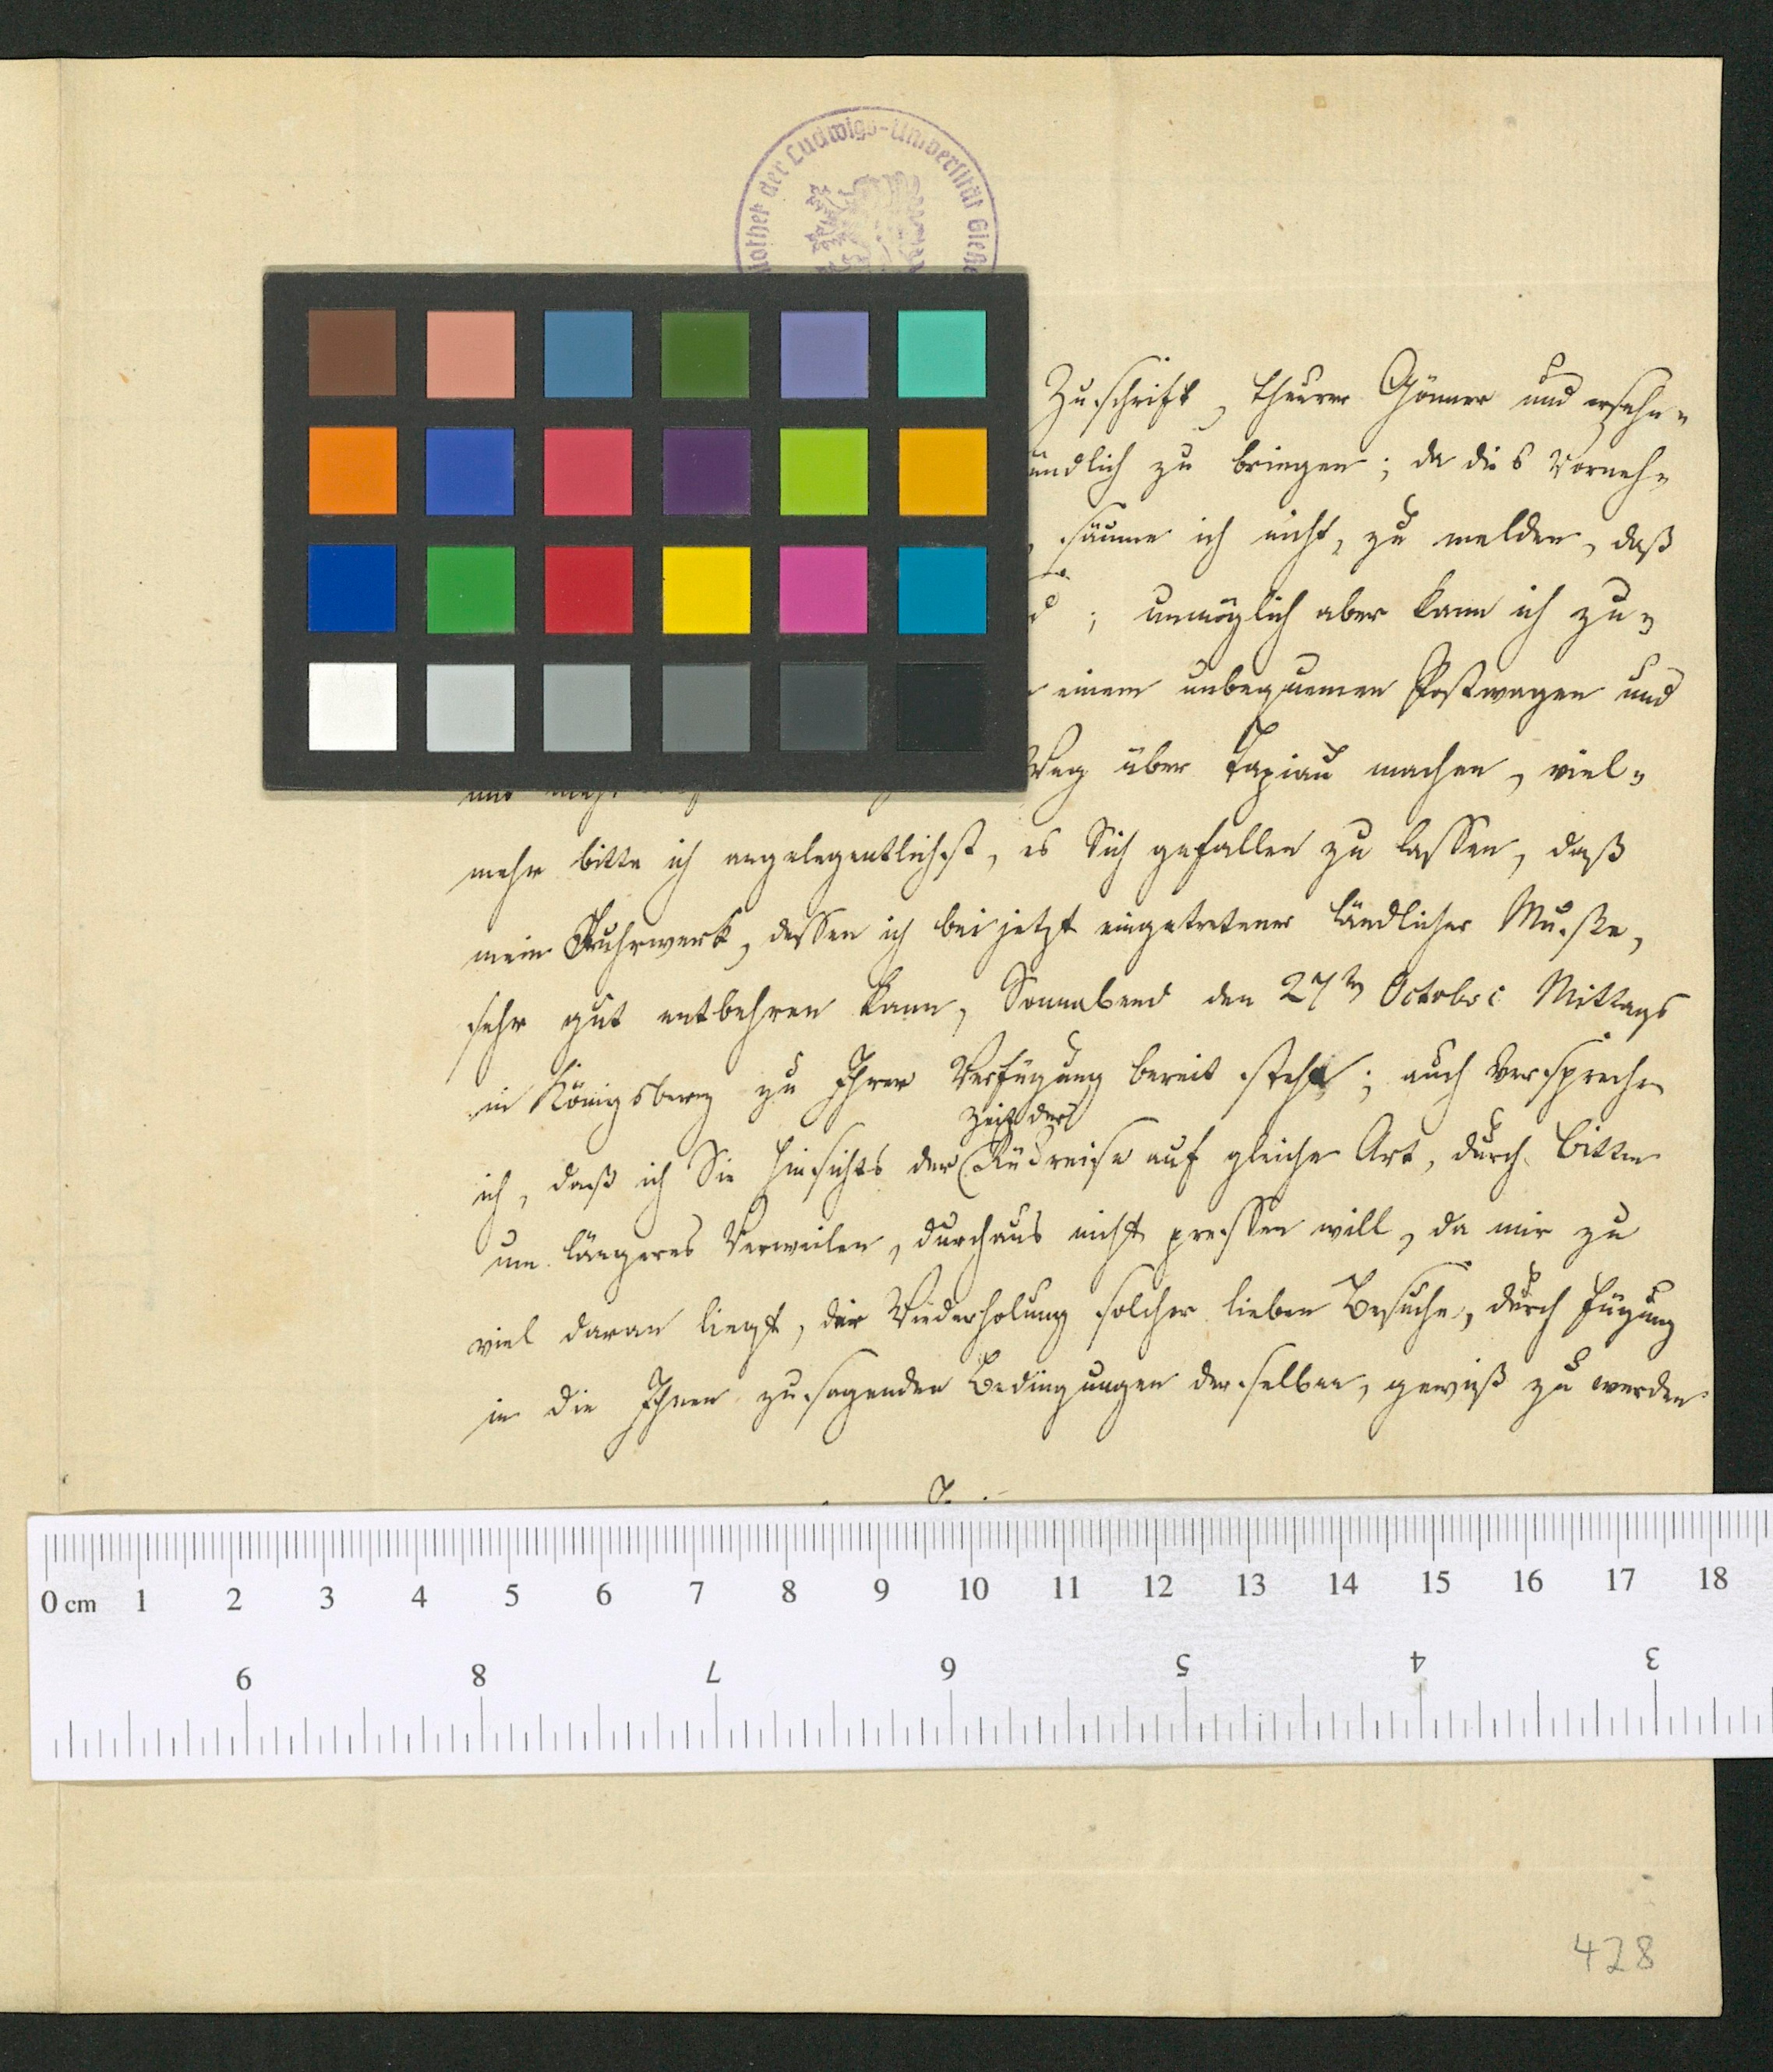 iothek der Ludwigs-Universität Gieß
Zuschrift, theurer Gönner und ersehn=
ündlich zu bringen; da dies Vorneh=
säume ich nicht, zu melden, daß
; unmöglich aber kann ich zu=
einem unbequemen Postwagen und
Weg über Tapiau machen, viel=
mehr bitte ich angelegentlichst, es Sich gefallen zu lassen, daß
mein Fuhrwerk, dessen ich bei jetzt eingetretener ländlicher Muße,
sehr gut entbehren kann, Sonnabend den 27tn October Mittags
in Königsberg zu Ihrer Verfügung bereit steht; auch verspreche
Zeit der
ich, daß ich Sie hinsichts der Rückreise auf gleiche Art, durch Bitten
um längeres Verweilen, durchaus nicht pressen will, da mir zu
viel daran liegt, der Wiederholung solcher lieben Besuche, durch Fügung
in die Ihnen zusagenden Bedingungen derselben, gewiß zu werden.
0 cm 1 2 3 4 5 6 7 8 9 10 11 12 13 14 15 16 17 18
9 8 7 6 5 4 3
428